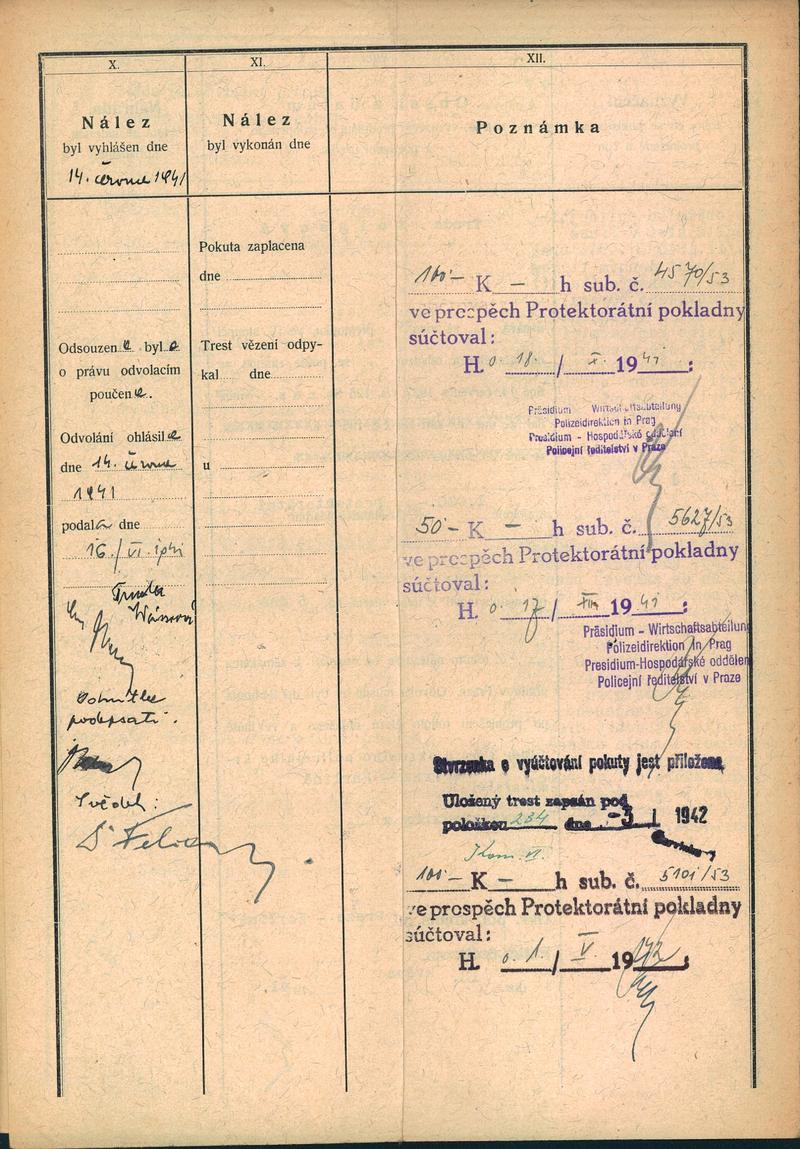 X.
Nález
byl vyhlášen dne
14. června 1941
Odsouzena byla
o právu odvolacím
poučena.
Odvolání ohlásila
dne 14. června
1941
podala dne
16./VI.
Odmítla
podepsati.
Svědek:
XI.
Nález
byl vykonán dne
Pokuta zaplacena
dne
Trest vězení odpy-
kal dne
u
XII.
Poznámka
100·- K — h sub. č. 4570/53
ve prospěch Protektorátní pokladny
súčtoval:
H. 0. 18. / X. 1941 :
Präsidium Wirtschaftsabteilung
Polizeidirektion in Prag
Presidium - Hospodářské oddělení
Policejní ředitelství v Praze
50·- K — h sub. č. 5627/53
ve prospěch Protektorátní pokladny
súčtoval:
H. 0. 17 / XII. 1941 :
Präsidium - Wirtschaftsabteilung
Polizeidirektion in Prag
Presidium-Hospodářské oddělen
Policejní ředitelství v Praze
Stvrzenka o vyúčtování pokuty jest přiložena.
Uložený trest zapsán pod
položkou 234 dne -3 I 1942
Kom. VI.
100·- K — h sub. č. 5101/53
ve prospěch Protektorátní pokladny
súčtoval:
H. 0. 1. / V. 1942 :